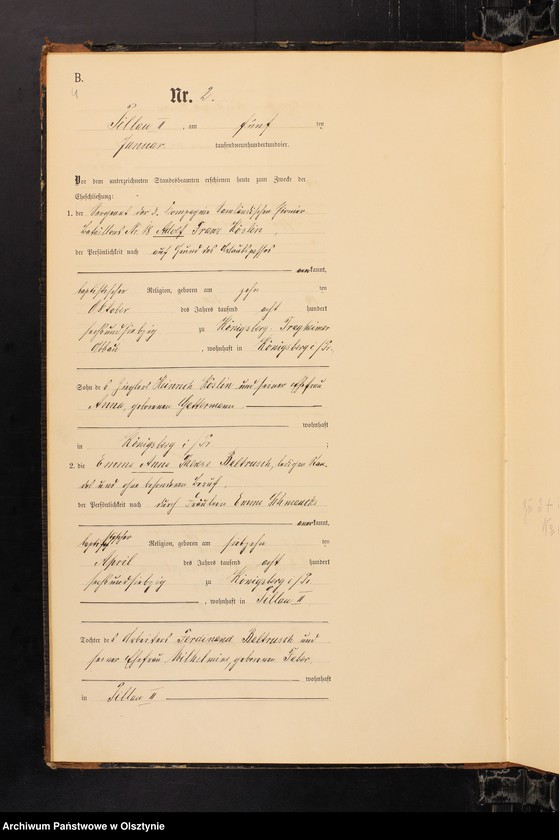 B.
4
Nr. 2.
Pillau II, am fünf ten
Januar tausendneunhundertundvier.
Vor dem unterzeichneten Standesbeamten erschienen heute zum Zwecke der
Eheschließung:
1. der Sergeant der 3. Compagnie Samländischen Pionier
Bataillons Nr. 18 Adolf Franz Köslin,
der Persönlichkeit nach auf Grund des Urlaubspasses
anerkannt,
baptistischer Religion, geboren am zehn ten
Oktober des Jahres tausend acht hundert
sechsundsiebzig zu Königsberg Tragheimer
, wohnhaft in Königsberg i/Pr.
Sohn des Heinrich Köslin und seiner Ehefrau
Anna, geborenen
wohnhaft
in Königsberg i/Pr. ;
2. die Emma Anna Therese Baltrusch, ledigen Stan-
des und ohne besonderen Beruf,
der Persönlichkeit nach durch Fräulein Emma
anerkannt,
baptistischer Religion, geboren am siebzehn ten
April des Jahres tausend acht hundert
sechsundsiebzig zu Königsberg i/Pr.
, wohnhaft in Pillau II
Tochter des Arbeiters Ferdinand Baltrusch und
seiner Ehefrau Wilhelmine, geborenen
wohnhaft
in Pillau II
Archiwum Państwowe w Olsztynie